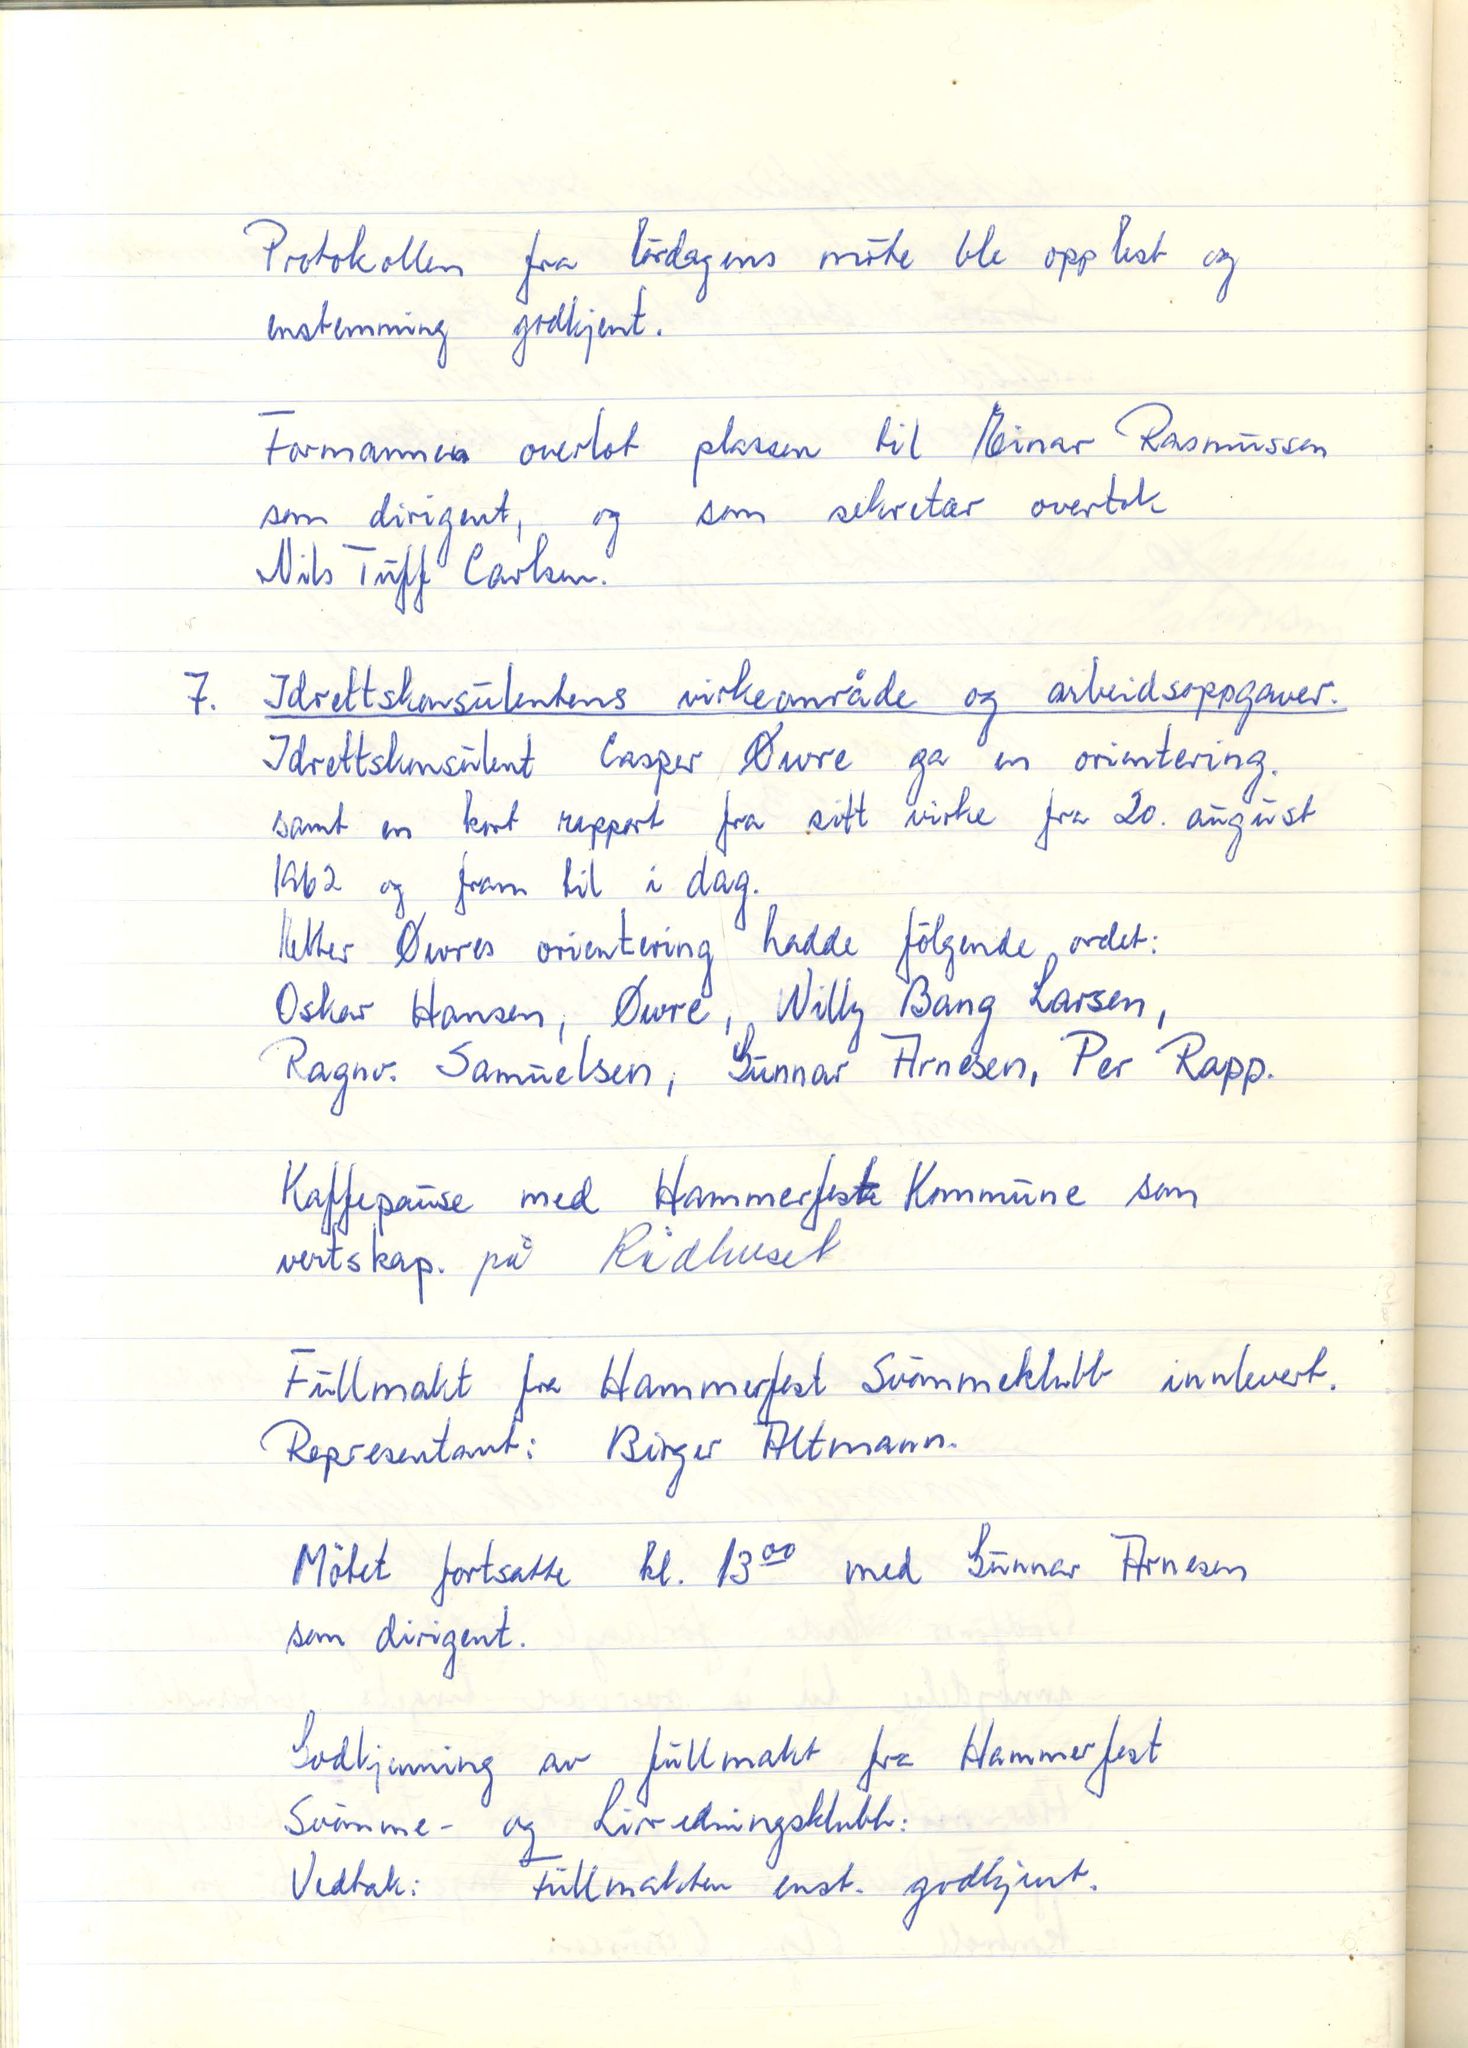 Protokollen fra lördagens möte ble opplest og
enstemming godkjent.
Formannen overlot plassen til Einar Rasmussen
som dirigent, og som sekretær overtok
Nils Tuff Carlsen.
7. Idrettskonsulentens virkeområde og arbeidsoppgaver.
Idrettskonsulent Casper Øwre ga en orientering.
samt en kort rapport fra sitt virke fra 20. august
1962 og fram til i dag.
Etter Øwres orientering hadde fölgende ordet:
Oskar Hansen, Øwre, Willy Bang Larsen,
Ragnv. Samuelsen, Gunnar Arnesen, Per Rapp.
Kaffepause med Hammerfest Kommune som
vertskap. på Rådhuset
Fullmakt fra Hammerfest Svömmeklubb innlevert.
Representant: Birger Altmann.
Mötet fortsatte kl. 13⁰⁰ med Gunnar Arnesen
som dirigent.
Godkjenning av fullmakt fra Hammerfest
Svömme- og Livredningsklubb:
Vedtak: Fullmakten enst. godkjent.